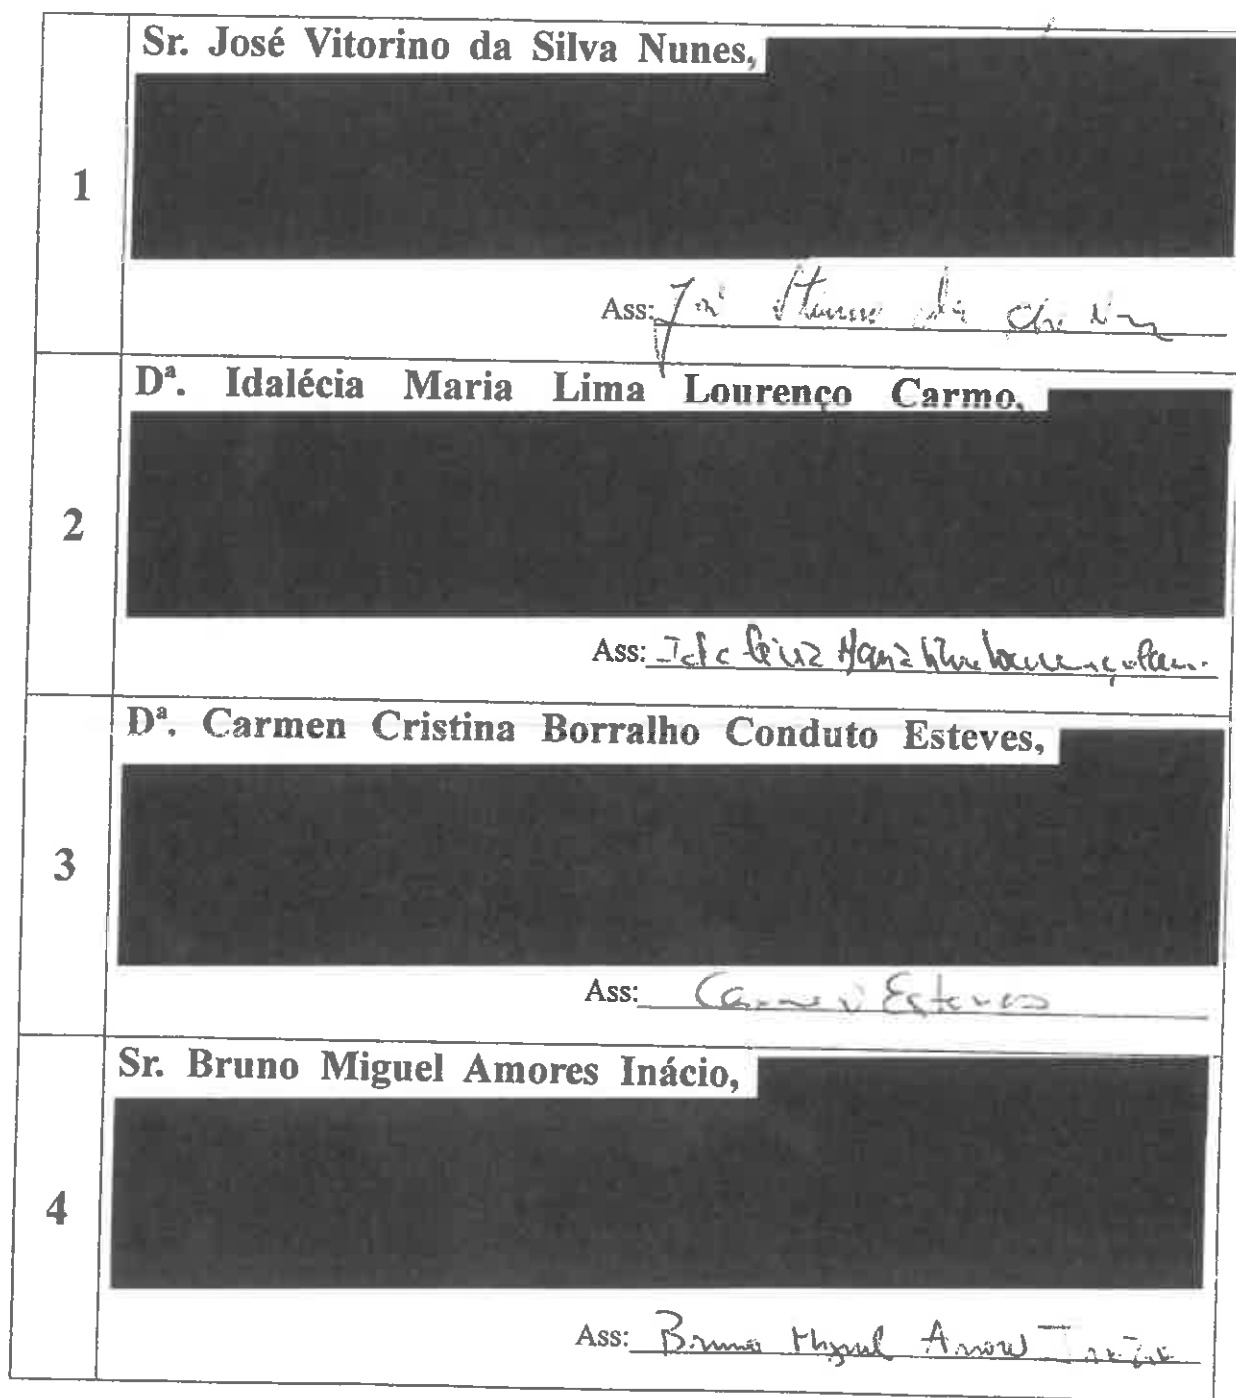 Sr. José Vitorino da Silva Nunes,
1
Ass: José Vitorino da Nunes
Dª. Idalécia Maria Lima Lourenço Carmo,
2
Ass: Idalécia Maria Lima Lourenço Carmo
Dª. Carmen Cristina Borralho Conduto Esteves,
3
Ass: Carmen Esteves
Sr. Bruno Miguel Amores Inácio,
4
Ass: Bruno Miguel Amores Inácio